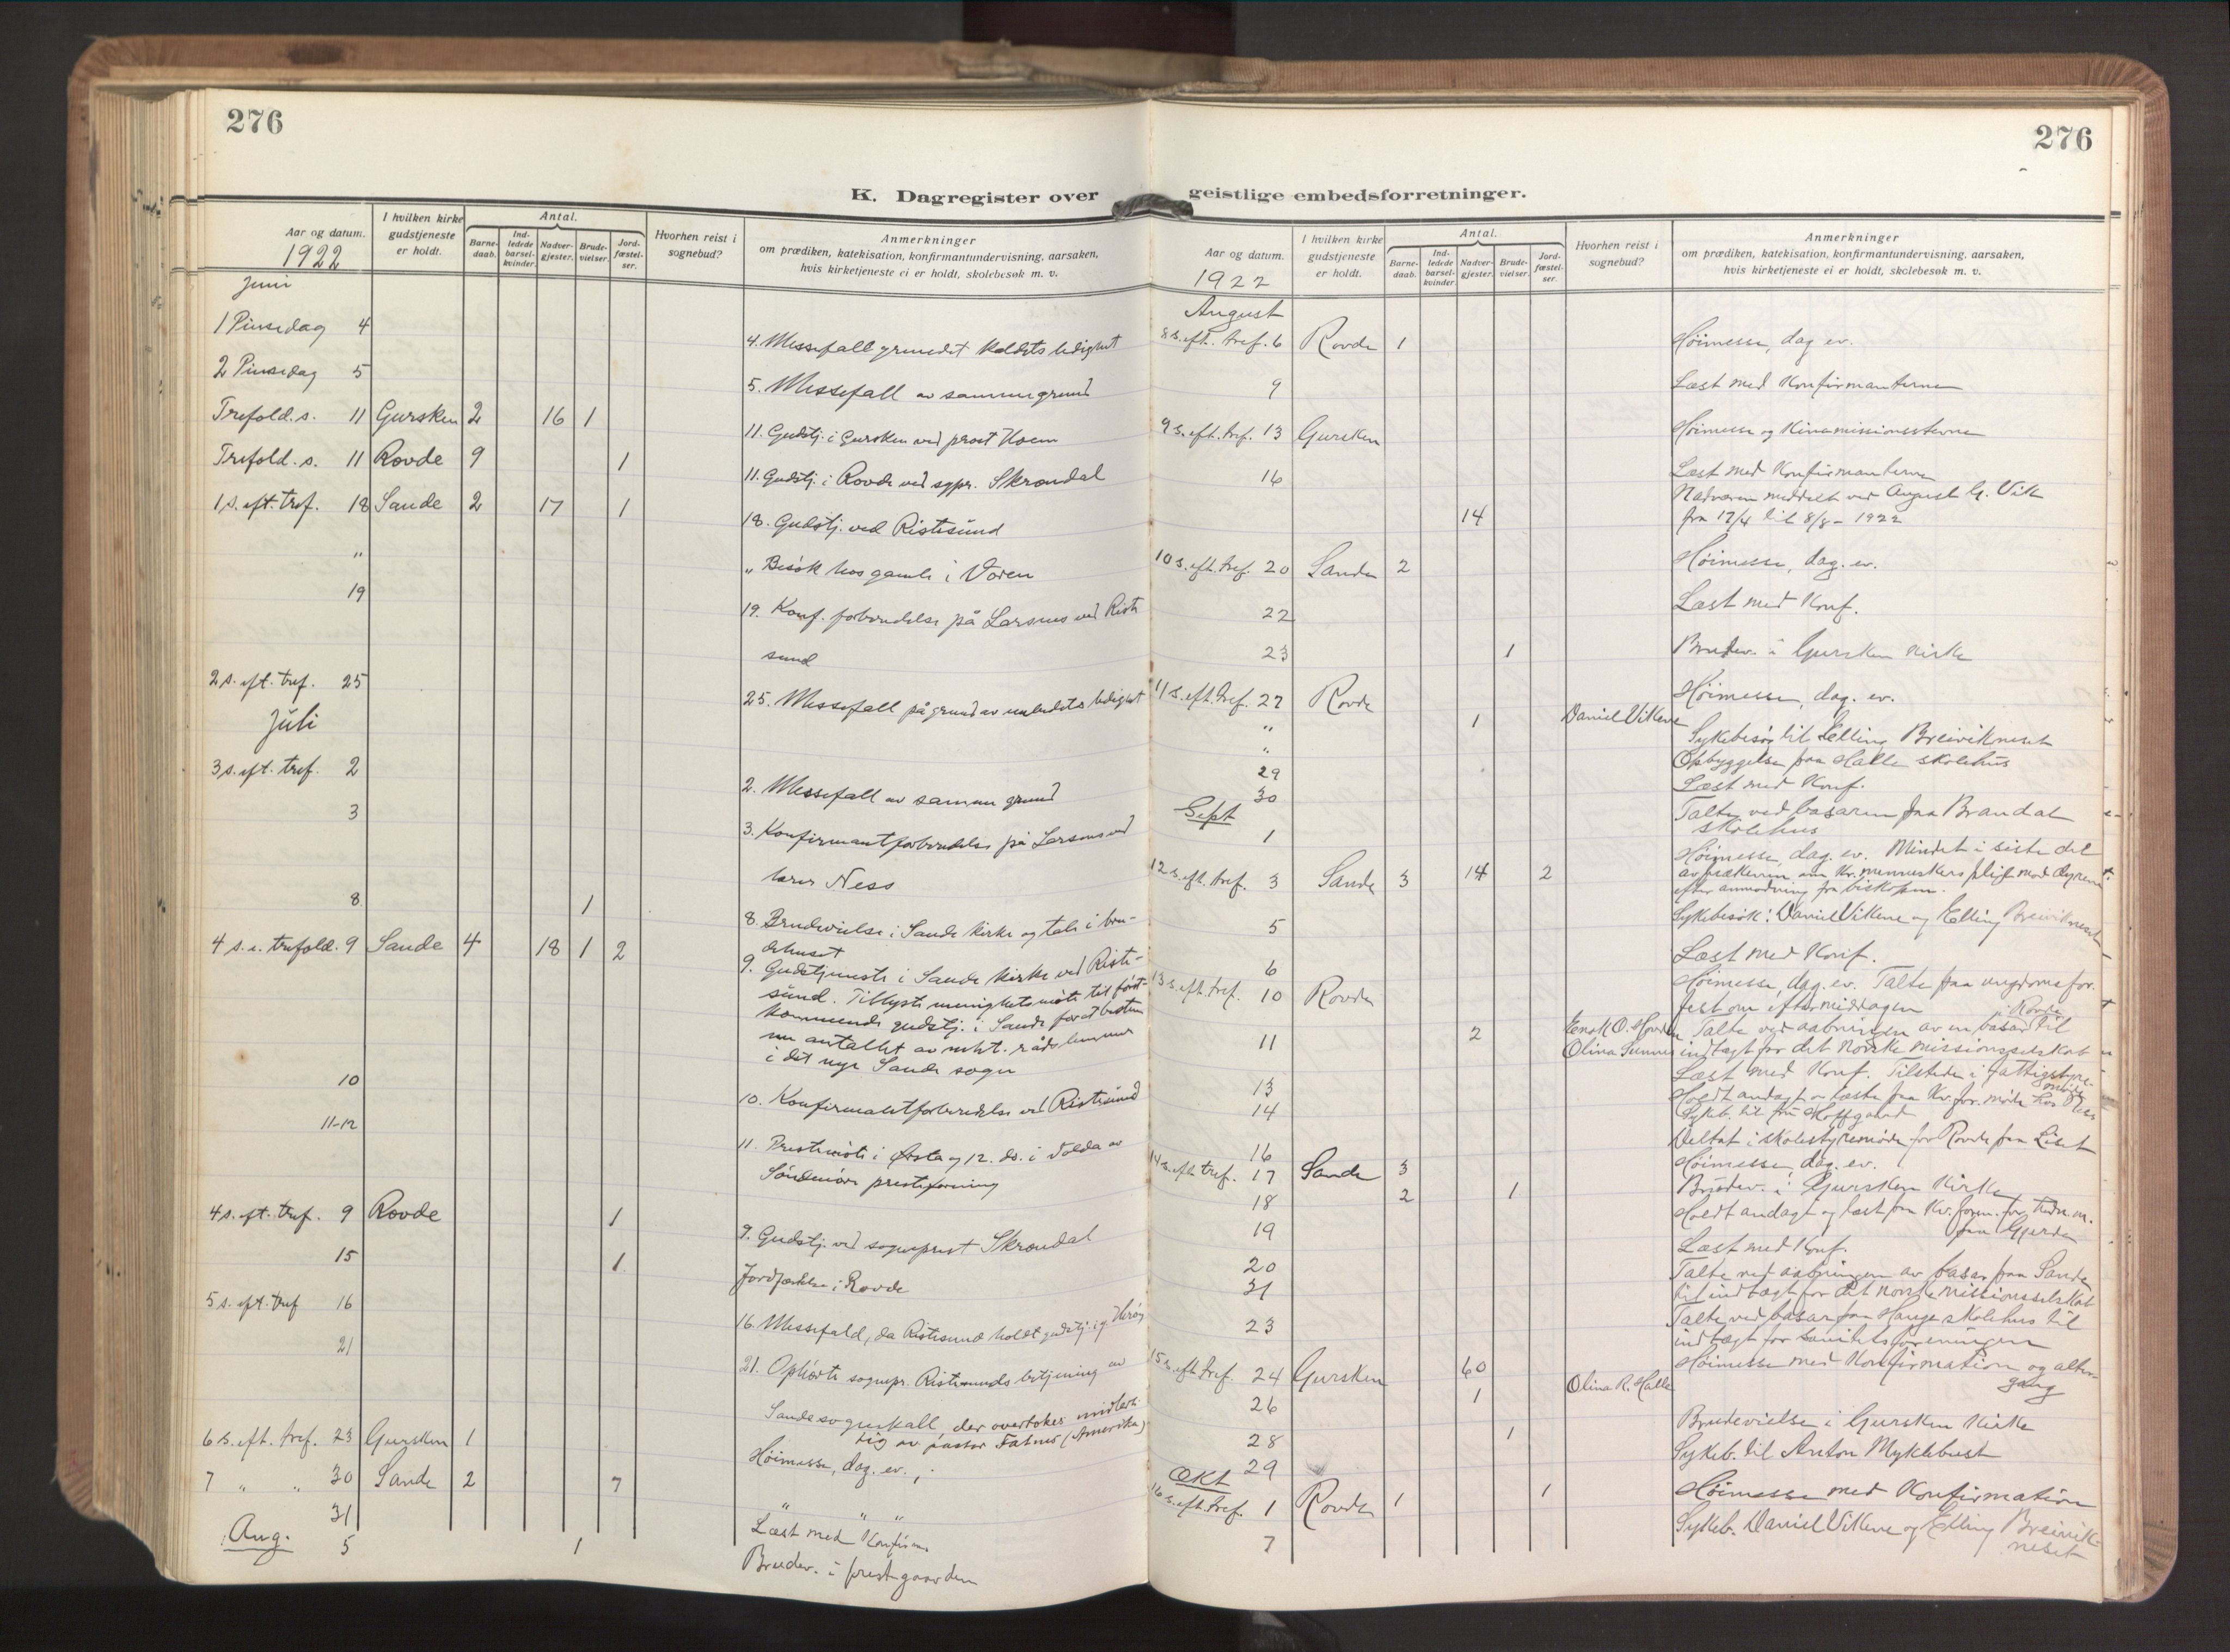 276
K. Dagregister over
Aar og datum.
1922
I hvilken kirke
gudstjeneste
er holdt.
Antal.
Barne-
daab.
Ind-
ledede
barsel-
kvinder.
Nadver-
gjester.
Brude-
vielser.
Jord-
fæstel-
ser.
Hvorhen reist i
sognebud?
Anmerkninger
om prædiken, katekisation, konfirmantundervisning, aarsaken,
hvis kirketjeneste ei er holdt, skolebesøk m. v.
Juni
1 Pinsedag 4 4. Messefall grundet kaldets ledighet
2 Pinsedag 5 5. Messefall av samme grund
Trefold. s. 11 Gursken 2 16 1 11. Gudstj. i Gursken ved prost Hoem
Trefold. s. 11 Rovde 9 1 11. Gudstj. i Rovde ved sgpr. Skrondal
1 s. eft. tref. 18 Sande 2 17 1 18. Gudstj. ved Ristesund
" " Besøk hos gamle i Voren
19 19. Konf. forberedelse på Larsnes ved Riste
sund
2 s. eft. tref. 25 25. Messefall på grund av embedets ledighet
Juli
3 s. eft. tref. 2 2. Messefall av samme grund
3 3. Konfirmantforberedelse på Larsnes ved
lærer Ness
8 1 8. Brudevielse i Sande kirke og tale i bru-
dehuset
4 s. e. trefold. 9 Sande 4 18 1 2 9. Gudstjeneste i Sande kirke ved Riste-
sund. Tillyste menighetsmøte til først-
kommende gudstj. i Sande for at bestem
me antallet av mht. rådslemmer
i det nye Sande sogn
10 10. Konfirmantforberedelse ved Ristesund
11-12 11. Prestemøte i Ørsta og 12. ds. i Volda av
Søndmøre presteforening
4 s. eft. tref. 9 Rovde 1 9. Gudstj. ved sogneprest Skrondal
15 1 Jordfæstelse i Rovde
5 s. eft. tref 16 16. Messefald, da Ristesund holdt gudstj. i Herøy
21 21. Ophørte sognepr. Ristesunds betjening av
Sande sognekall, der overtokes midlerti
dig av pastor Fatnes (Amerika)
6 s. eft. tref. 23 Gursken 1 Høimesse, dag. ev.,
7 " " 30 Sande 2 7 " " "
31 Læst med Konfirm
Aug. 5 1 Brudev. i prestgaarden
276
geistlige embedsforretninger.
Aar og datum.
1922
I hvilken kirke
gudstjeneste
er holdt.
Antal.
Barne-
daab.
Ind-
ledede
barsel-
kvinder.
Nadver-
gjester.
Brude-
vielser.
Jord-
fæstel-
ser.
Hvorhen reist i
sognebud?
Anmerkninger
om prædiken, katekisation, konfirmantundervisning, aarsaken,
hvis kirketjeneste ei er holdt, skolebesøk m. v.
August
8 s. eft. tref. 6 Rovde 1 Høimesse, dag ev.
9 Læst med Konfirmanterne
9 s. eft. tref. 13 Gursken Høimesse og Kinamissionsstevne
16 Læst med Konfirmanterne
Nadveren meddelt ved August G. Vik
14 fra 17/4 til 8/8 - 1922
10 s. eft. tref. 20 Sande 2 Høimesse, dag. ev.
22 Læst med Konf.
23 1 Brudev. i Gursken Kirke
11 s. eft. tref. 27 Rovde Høimesse, dag. ev.
" 1 Daniel Vikene Sykebesøg til Elling Breivikneset
" Opbyggelse paa Halle skolehus
29 Læst med Konf.
30 Talte ved basaren paa Brandal
skolehus
Sept
1
12 s. eft. tref. 3 Sande 3 14 2 Høimesse, dag. ev. Mindet i siste del
av prækenen om Kr. menneskers pligt mod dyrene
efter anmodning fra biskopen.
5 Sykebesøk: Daniel Vikene og Elling Breivikneset
6 Læst med Konf.
13 s. eft. tref. 10 Rovde Høimesse, dag. ev. Talte paa ungdomsfor.
fest om eftermiddagen i Rovde
11 2 Enok O. Hovden Talte ved aabningen av en basar til
Olina Sunnes indtægt for det Norske missionsselskab
13 Læst med Konf. Tilstede i fattigstyre-
møde
14 Holdt andagt og læste paa Kv. for. møde hos
Sykeb. til fru Hoffgaard
16 Deltat i skolestyremøde for Rovde paa Liset
14 s. eft. tref. 17 Sande 3 Høimesse, dag. ev.
18 2 1 Brudev. i Gursken Kirke
19 Holdt andagt og læst paa Kv. foren. for
paa Gjerde
20 Læst med Konf.
31 Talte ved aabningen av basar paa Sande
til indtægt for det norske missionsselskab
23 Talte ved basar paa Hauge skolehus til
indtægt for sanitetsforeningen
15 s. eft. tref. 24 Gursken 60 Høimesse med Konfirmation og alter-
gang
26 1 Olina R. Halle
28 1 Brudevielse i Gursken Kirke
29 Sykeb. til Anton Myklebust
Okt
16 s. eft. tref. 1 Rovde 1 1 Høimesse med Konfirmation
7 Sykeb. Daniel Vikene og Elling Breivik-
neset